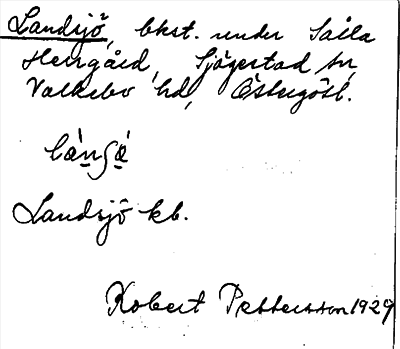 Landsjö, bkst. under Sålla
Herrgård, Sjögestad sn,
Valkebo hd, Östergötl.
Landsjö kb.
Robert Pettersson 1929